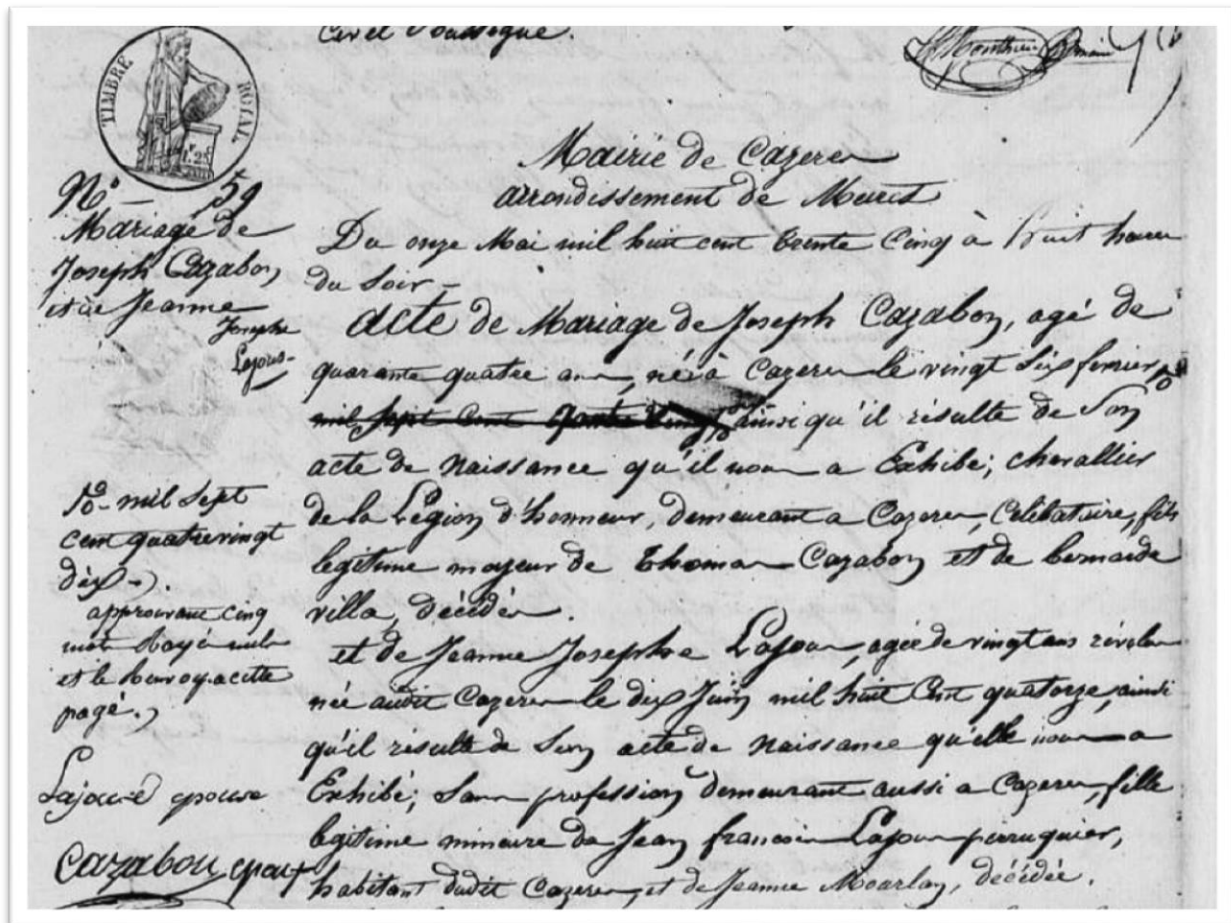 Civil Soussigné.
TIMBRE ROYAL
1.25
Mairie de Cazeres
arrondissement de Muret
N° - 59
Mariage de
Joseph Cazabon
et de Jeanne
Josephe
Lajous-
Du onze Mai mil huit cent trente Cinq à huit heures
du Soir -
acte de Mariage de Joseph Cazabon, agé de
quarante quatre ans, né à Cazeres le vingt Six fevrier
mil Sept Cent Quatre Vingt ainsi qu'il résulte de Son
acte de Naissance qu'il nous a Exhibé; chevallier
de la Légion d'honneur, demeurant a Cazeres, Célibataire, fils
legitime majeur de Thomas Cazabon et de bernarde
villa, décédés.
et de Jeanne Josephe Lajous, agée de vingt ans révolus
née audit Cazeres le dix Juin mil huit Cent quatorze, ainsi
qu'il résulte de Son acte de Naissance qu'elle nous a
Exhibé; Sans profession demeurant aussi a Cazeres, fille
legitime mineure de Jean francois Lajous perruquier,
habitant dudit Cazeres, et de Jeanne Mourlan, décédée.
mil Sept
cent quatrevingt
dix -).
approuvant cinq
mots Rayés nuls
et le Renvoy a cette
page.)
Lajous épouse
Cazabon époux